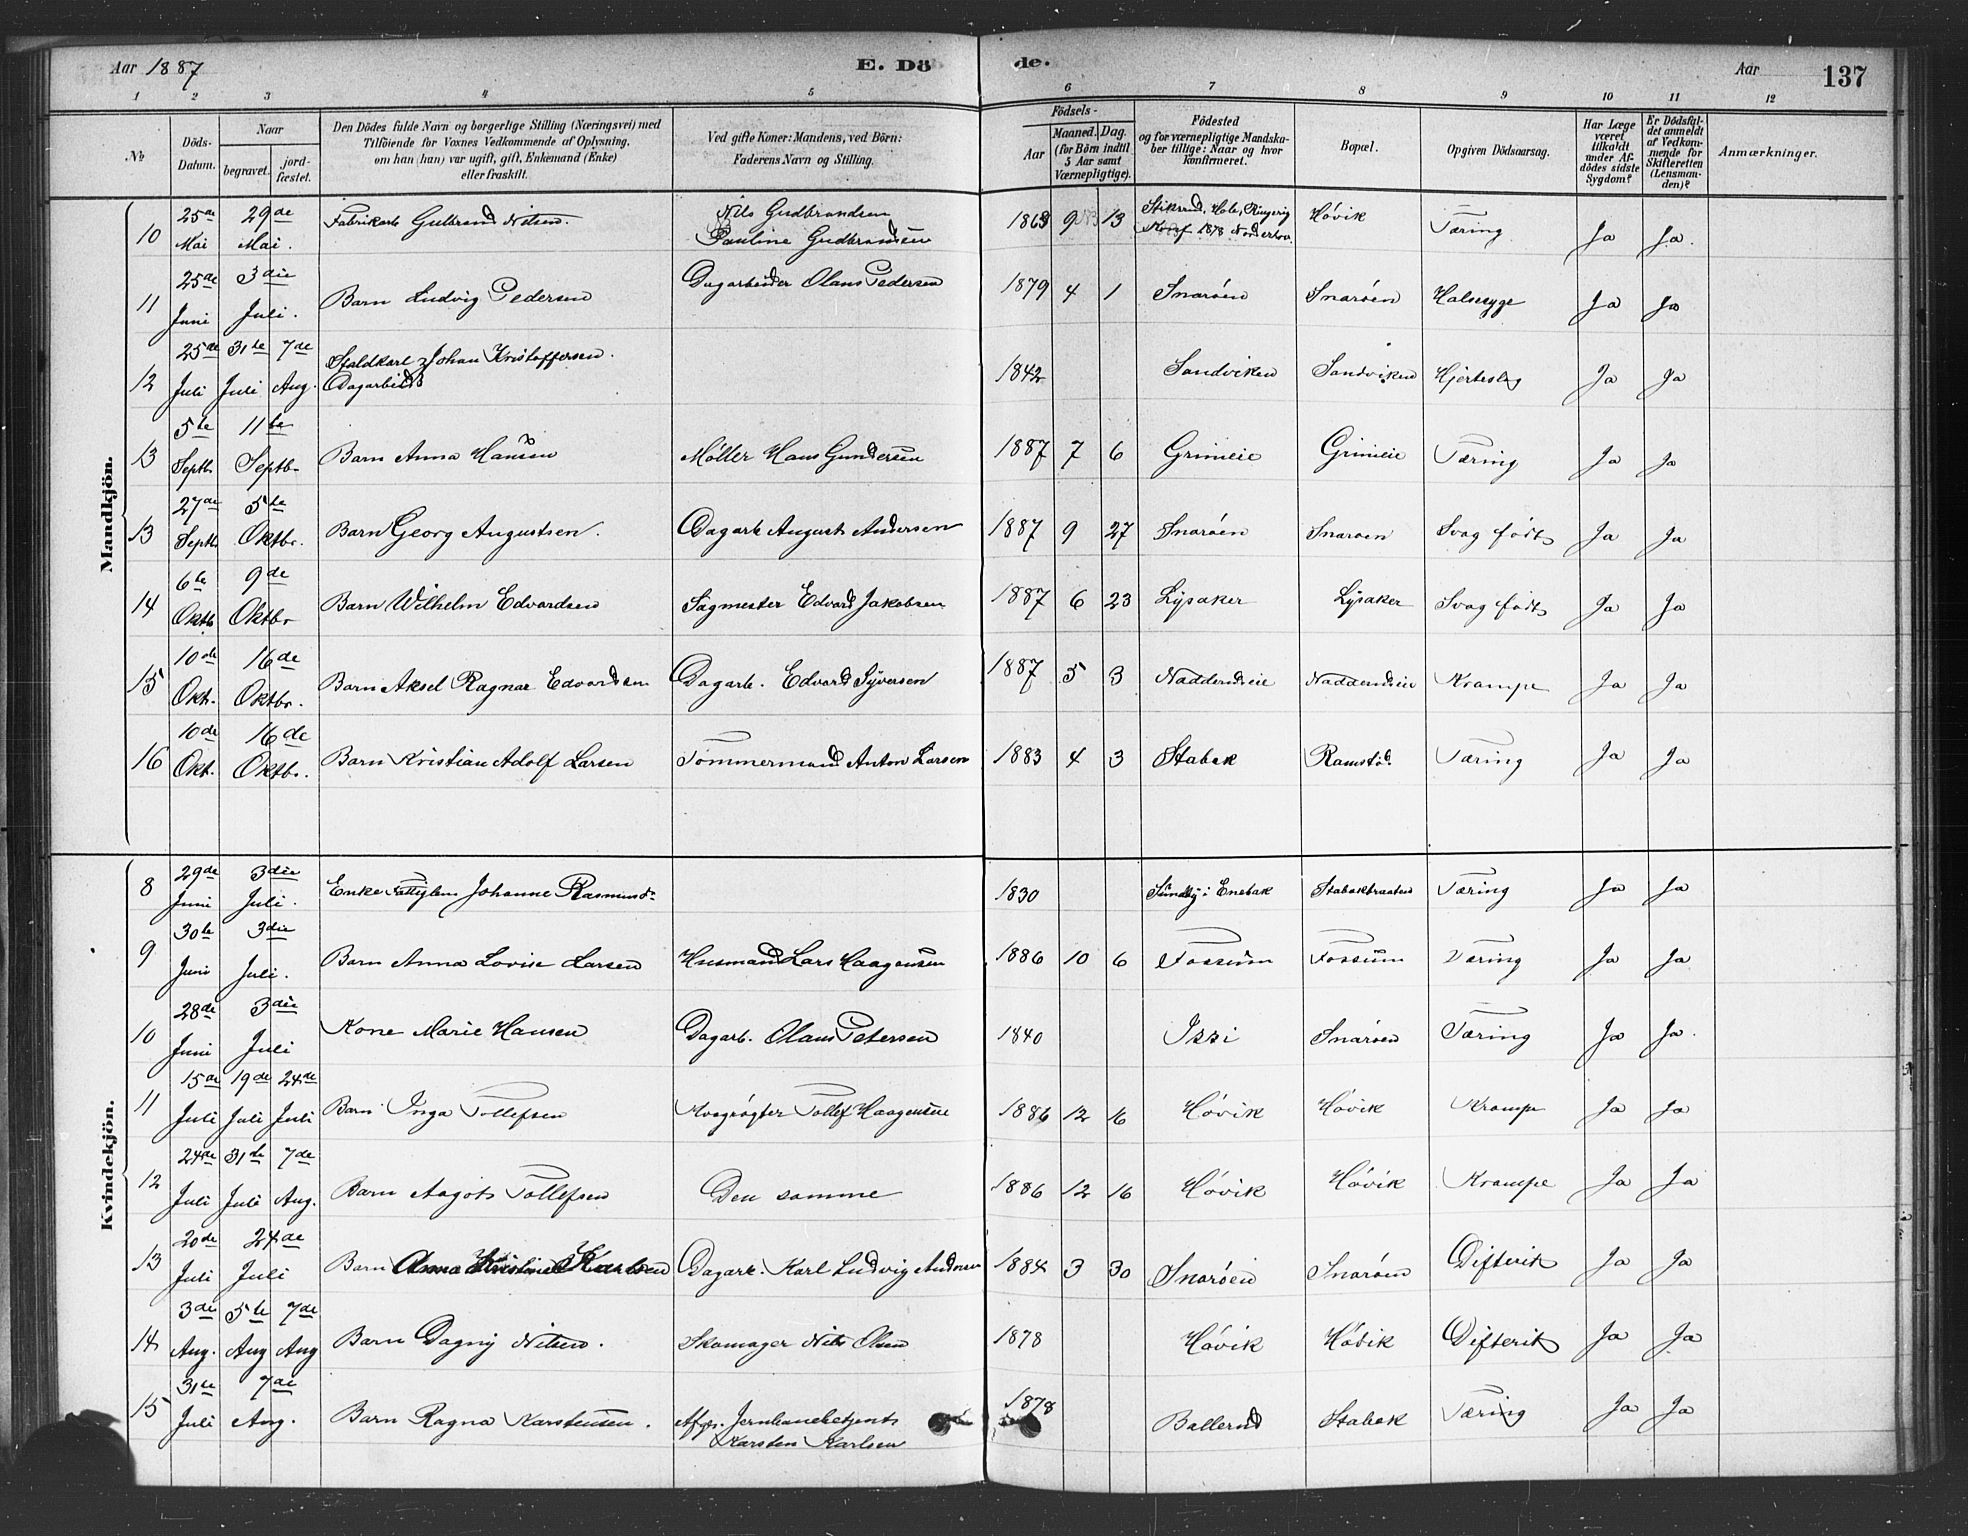 Aar 1887 E. Döde. Aar 137
1 2 3 4 5 6 7 8 9 10 11 12
No.
Döds-Datum.
Naar
begravet.
jordfæstet.
Den Dödes fulde Navn og borgerlige Stilling (Næringsvei) med
Tilföiende for Voxnes Vedkommende af Oplysning,
om han (hun) var ugift, gift, Enkemand (Enke)
eller fraskilt.
Ved gifte Koner: Mandens, ved Börn:
Faderens Navn og Stilling.
Födsels-
Aar
Maaned. Dag.
(for Börn indtil
5 Aar samt
Værnepligtige).
Födested
og for værnepligtige Mandskaber tillige: Naar og hvor
konfirmeret.
Bopæl.
Opgiven Dödsaarsag.
Har Læge været tilkaldt under Afdödes sidste Sygdom?
Er Dödsfaldet anmeldt af Vedkommende for Skifteretten (Lensmanden)?
Anmærkninger.
Mandkjön.
10 25de Mai 29de Mai. Fabrikarb Gulbrand Nilsen. Nils Gudbrandsen Pauline Gudbrandsen 1863 9 13 Hole, Ringerig Konf 1878 Høvik Tæring Ja Ja.
11 25de Juni 3die Juli. Barn Ludvig Pedersen Dagarbeider Olaus Pedersen 1879 4 1 Snarøen Snarøen Halssyge Ja Ja
12 25de Juli 31te Juli 7de Aug. Staldkarl Johan Kristoffersen. 1842 Sandviken Sandviken Hjerteslag Ja Ja
13 5te Septb 11te Septbr Barn Anna Hansen Møller Hans Gundersen 1887 7 6 Grinieie Grinieie Tæring Ja Ja
13 27de Septb 5te Oktbr. Barn Georg Augustsen. Dagarb August Andersen 1887 9 27 Snarøen Snarøen Svag født Ja Ja
14 6te Oktb 9de Oktbr Barn Wilhelm Edvardsen Sagmester Edvard Jakobsen 1887 6 23 Lysaker Lysaker Svag født Ja Ja
15 10de Okt. 16de Oktbr. Barn Aksel Ragnar Edvardsen Dagarb. Edvard Syversen 1887 5 3 Nadderudeie Nadderudeie Krampe Ja Ja
16 10de Okt. 16de Oktbr. Barn Kristian Adolf Larsen Tømmermand Anton Larsen 1883 4 3 Stabæk Ramstad. Tæring Ja Ja
Kvindekjön.
8 29de Juni 3die Juli. Enke Johanne Rasmusd. 1830 Sundby i Enebak Stabækbraaten Tæring Ja Ja
9 30te Juni 3die Juli. Barn Anna Lovise Larsen Husmand Lars Haagensen 1886 10 6 Fossum Fossum Tæring Ja Ja
10 28de Juni 3die Juli Kone Marie Hansen Dagarb. Olaus Petersen 1840 Snarøen Tæring Ja Ja.
11 15de Juli 19de Juli 24de Juli Barn Inga Tollefsen Tollef Haagensen 1886 12 16 Høvik Høvik Krampe Ja Ja
12 24de Juli 31te Juli 7de Aug. Barn Aagot Tollefsen Den samme 1886 12 16 Høvik Høvik Krampe Ja Ja
13 20de Juli 24de Juli Barn Anna Kristine Karlsen Dagarb. Karl Ludvig Andersen 1884 3 30 Snarøen Snarøen Difterit Ja Ja
14 3die Aug. 5te Aug 7de Aug Barn Dagny Nilsen. Skomager Nils Olsen 1878 Høvik Høvik Difterit Ja Ja
15 31te Juli 7de Aug. Barn Ragna Karstensen. Afg. Jernbanebetjent Karsten Karlsen 1878 Ballerud Stabæk Tæring Ja Ja